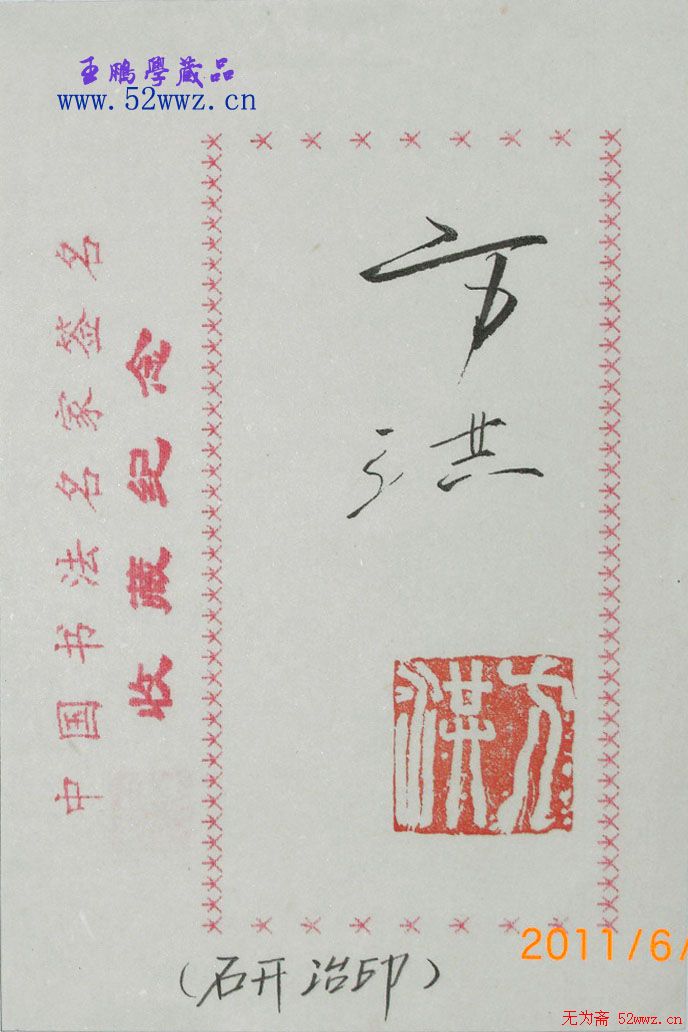 王鵬學藏品
www.52wwz.cn
中国书法名家签名
收藏纪念
方
洪
方洪
(石开治印)
2011/6/
无为斋 52wwz.cn